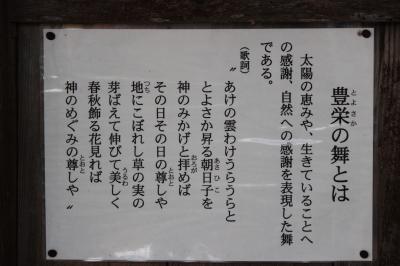 豊栄の舞とは
とよさか
太陽の恵みや、生きていることへ
の感謝、自然への感謝を表現した舞
である。
（歌詞）
〝あけの雲わけうらうらと
とよさか昇る朝日子を
あさひこ
神のみかげと拝めば
おろが
その日その日の尊しや
とおと
地にこぼれし草の実の
つち
芽ばえて伸びて美しく
うるわ
春秋飾る花見れば
神のめぐみの尊しや〟
とおと